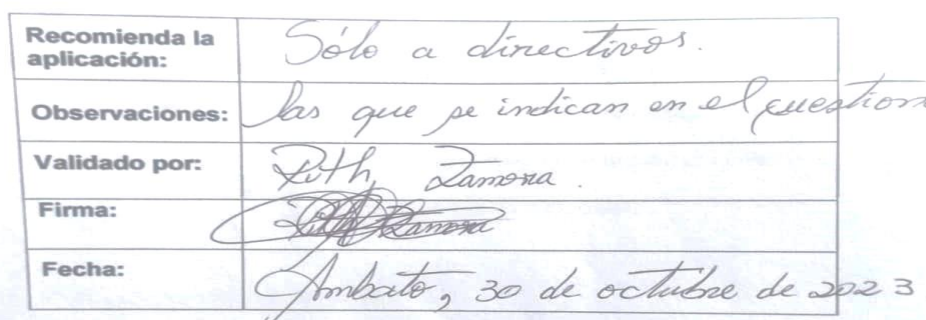 Recomienda la
aplicación: Sólo a directivos.
Observaciones: las que se indican en el cuestion
Validado por: Ruth Zamora.
Firma: Ruth Zamora
Fecha: Ambato, 30 de octubre de 2023